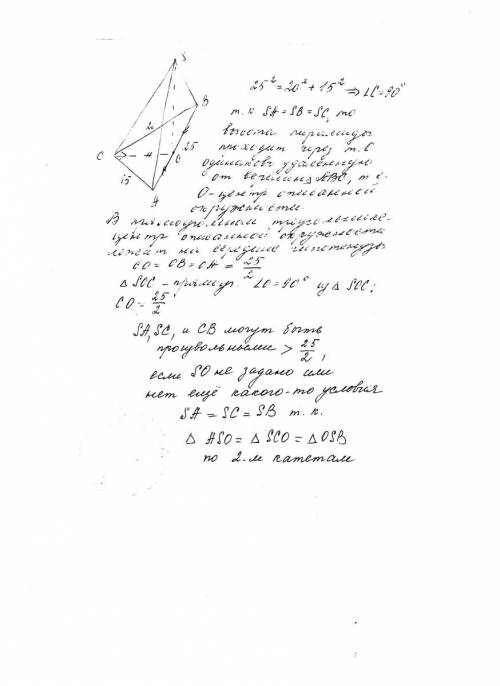 S
B
C
A
O
20
25
15
25² = 20² + 15² ⇒ ∠C = 90°
т.к. SA = SB = SC, то
высота пирамиды
проходит через т. O
одинаково удаленную
от вершин ΔABC, т.е.
O - центр описанной
окружности.
В прямоугольном треугольнике
центр описанной окружности
лежит на середине гипотенузы
CO = OB = OA = 25/2
Δ SOC - прямоуг. ∠O = 90° из Δ SOC:
CO = 25/2
SA, SC, и СВ могут быть
произвольными > 25/2,
если SO не задано или
нет ещё какого-то условия
SA = SC = SB т.к.
Δ ASO = Δ SCO = Δ OSB
по 2-м катетам